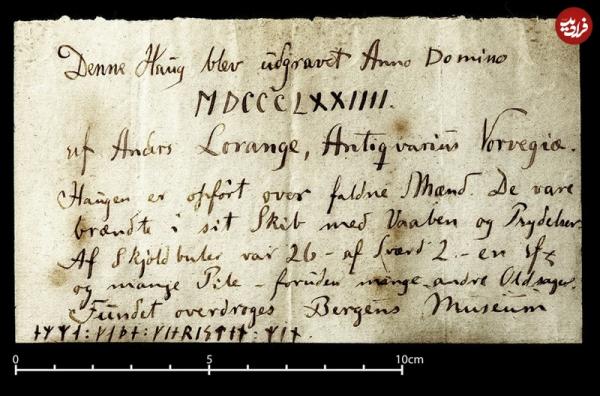 فرادید
Denne Haug blev udgravet Anno Domino
MDCCCLXXIIII.
af Anders Lorange, Antiqvarius Norvegiæ.
Haugen er opført over faldne Mænd. De vare
brændte i sit Skib med Vaaben og Prydelser.
Af Skjoldbuler var 26 - af Sværd 2 - en
og mange Pile - foruden mange andre Oldsager.
Fundet overdroges Bergens Museum
0 5 10cm